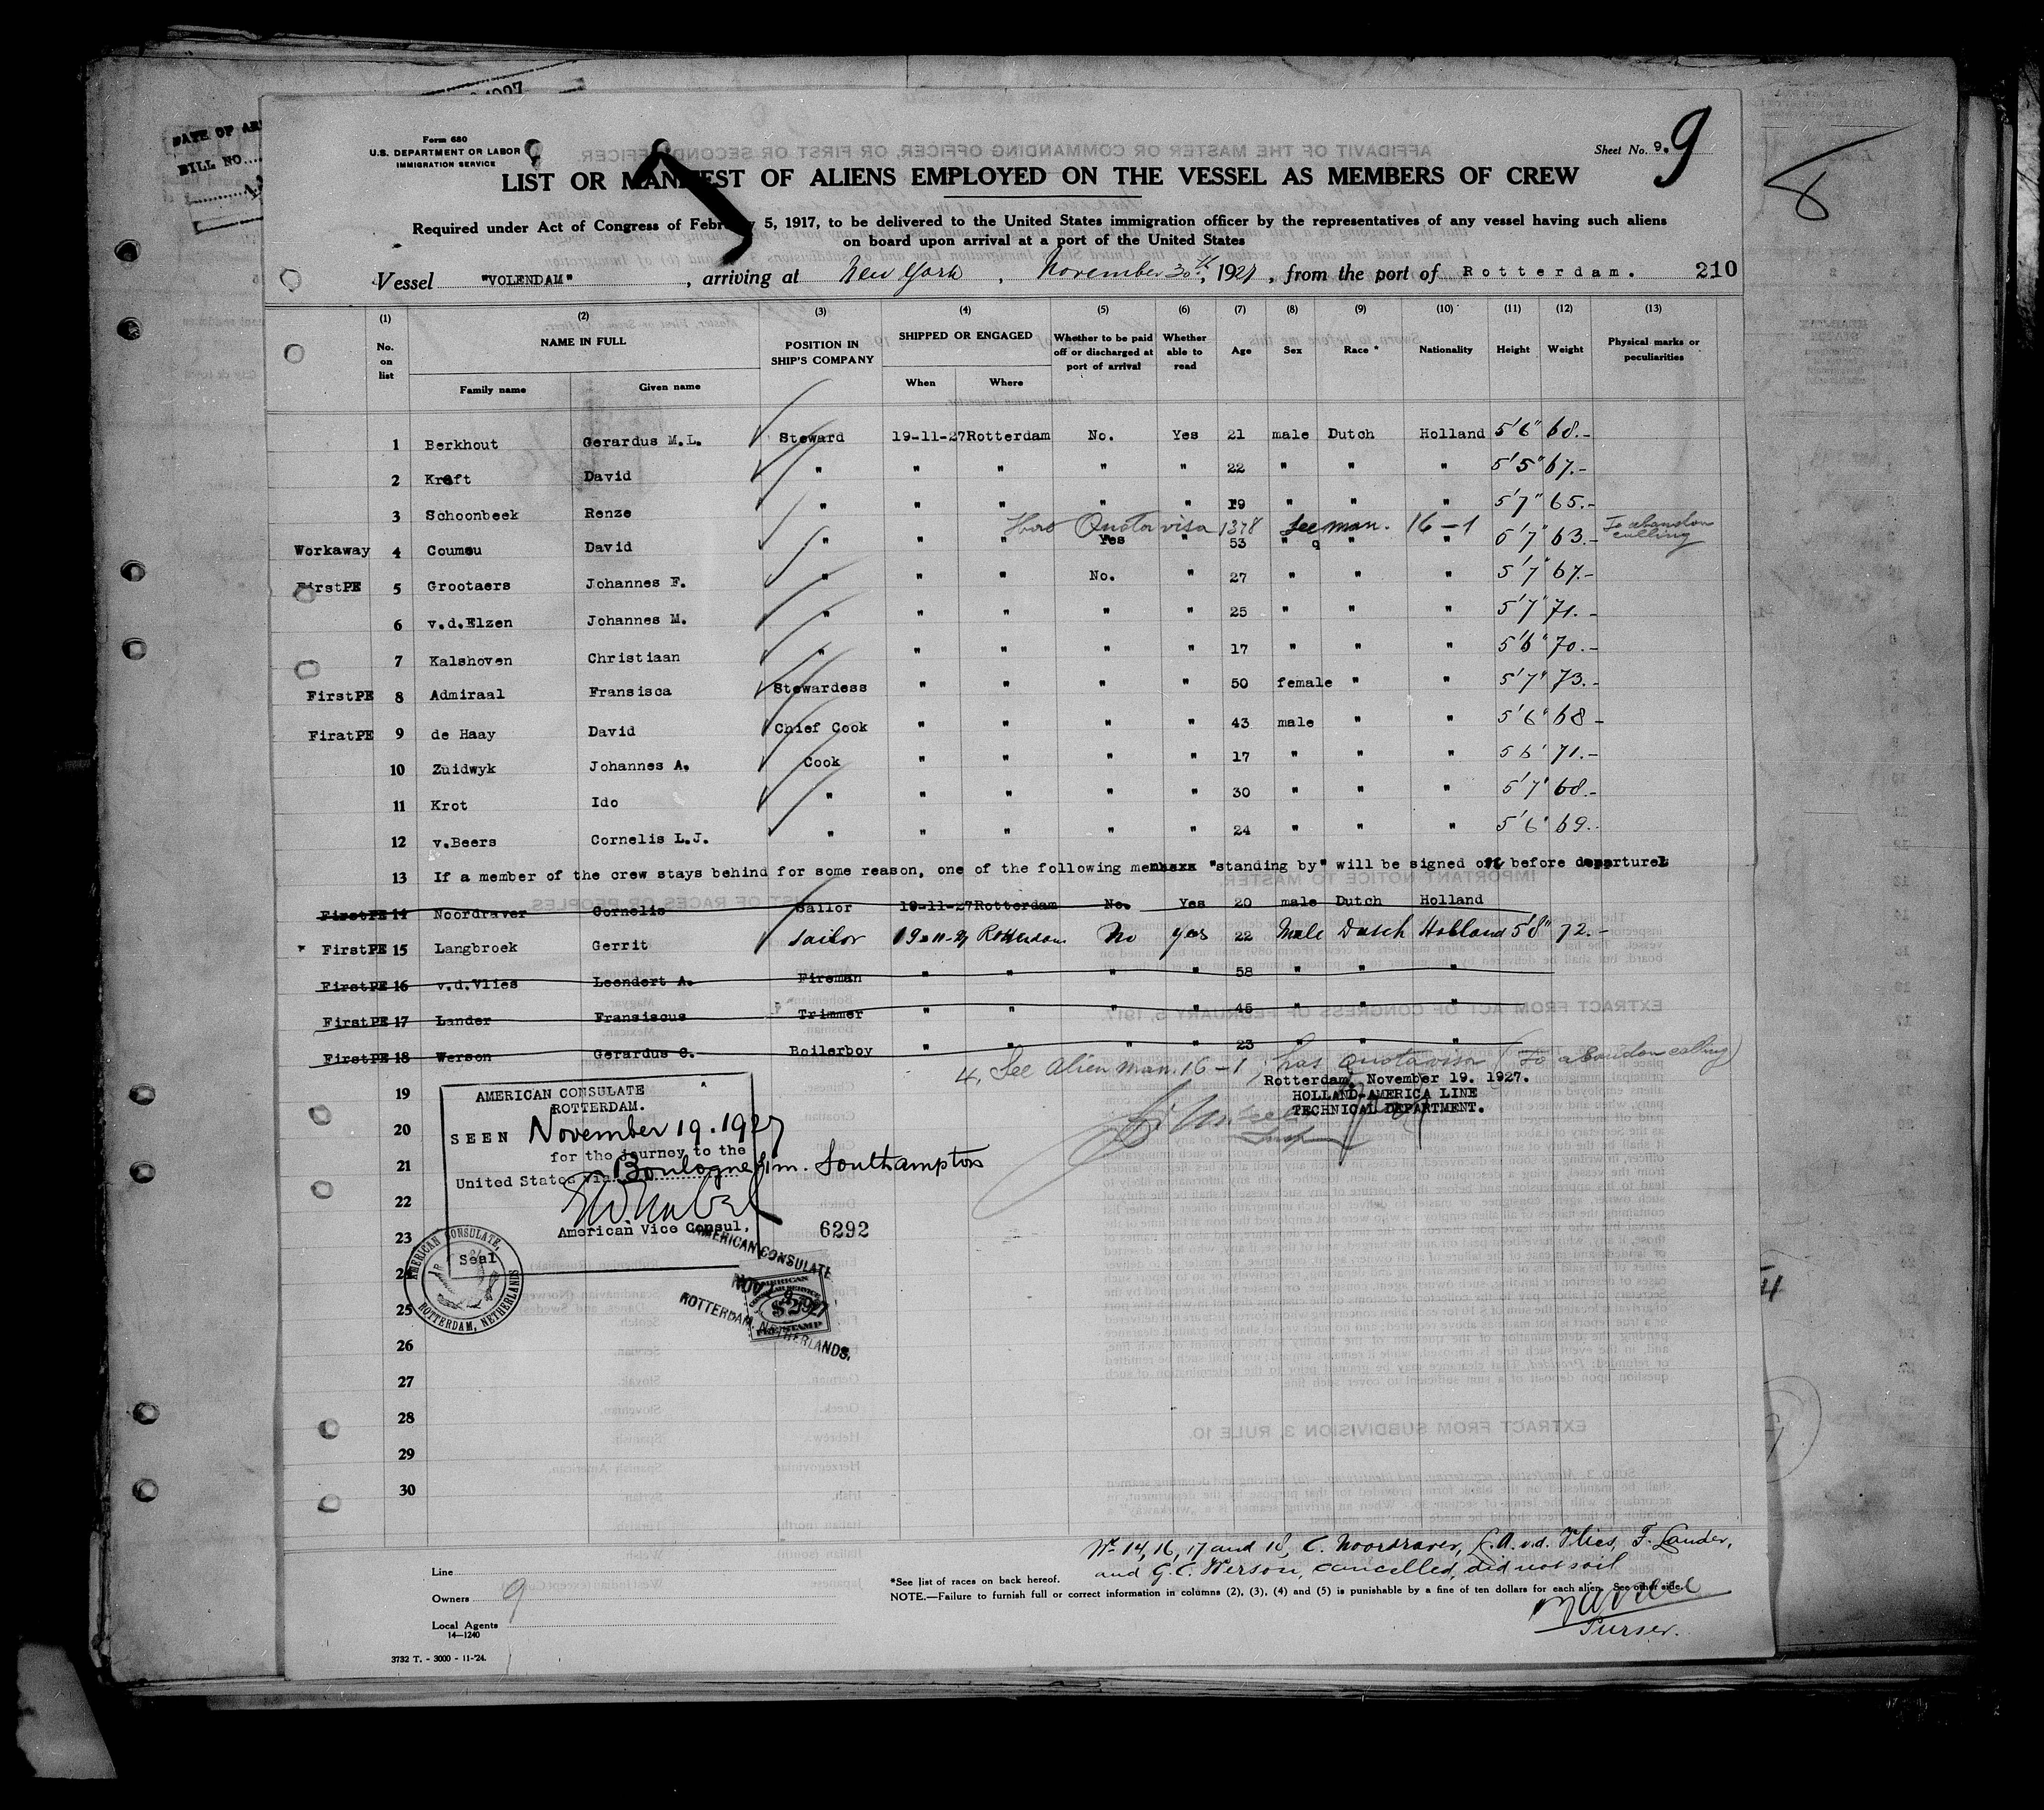 Form 680
U.S. DEPARTMENT OR LABOR
IMMIGRATION SERVICE
Sheet No. 9. 9
LIST OR MANIFEST OF ALIENS EMPLOYED ON THE VESSEL AS MEMBERS OF CREW
Required under Act of Congress of February 5, 1917, to be delivered to the United States immigration officer by the representatives of any vessel having such aliens
on board upon arrival at a port of the United States
Vessel "VOLENDAM", arriving at New York, November 30th, 1927, from the port of Rotterdam. 210
(1) (2) (3) (4) (5) (6) (7) (8) (9) (10) (11) (12) (13)
No. on list NAME IN FULL Family name Given name POSITION IN SHIP'S COMPANY SHIPPED OR ENGAGED When Where Whether to be paid off or discharged at port of arrival Whether able to read Age Sex Race * Nationality Height Weight Physical marks or peculiarities
1 Berkhout Gerardus M.L. Steward 19-11-27 Rotterdam No. Yes 21 male Dutch Holland 5'6" 68.-
2 Kraft David " " " " " 22 " " " 5'5" 67.-
3 Schoonbeek Renze " " " " " 19 " " " 5'7" 65.-
Has Quota visa 1378 see man. 16-1
Workaway 4 Coumou David " " " Yes " 53 " " " 5'7" 63.- To abandon calling
FirstPE 5 Grootaers Johannes F. " " " No. " 27 " " " 5'7" 67.-
6 v.d.Elzen Johannes M. " " " " " 25 " " " 5'7" 71.-
7 Kalshoven Christiaan " " " " " 17 " " " 5'6" 70.-
FirstPE 8 Admiraal Fransisca Stewardess " " " " 50 female " " 5'7" 73.-
FiratPE 9 de Haay David Chief Cook " " " " 43 male " " 5'6" 68-
10 Zuidwyk Johannes A. Cook " " " " 17 " " " 5 6' 71.-
11 Krot Ido " " " " " 30 " " " 5'7" 68.-
12 v.Beers Cornelis L.J. " " " " " 24 " " " 5'6" 69.-
13 If a member of the crew stays behind for some reason, one of the following "standing by" will be signed off before departure
FirstPE 14 Noordraver Cornelis Sailor 19-11-27 Rotterdam No. Yes 20 male Dutch Holland
FirstPE 15 Langbroek Gerrit Sailor 19-11-27 Rotterdam No yes 22 Male Dutch Holland 5'8" 72.-
FirstPE 16 v.d.Vlies Leendert A. Fireman " " " " 58 " " "
FirstPE 17 Lander Fransiscus Trimmer " " " " 45 " " "
FirstPE 18 Werson Gerardus C. Boilerboy " " " " 23 " " "
4, See Alien man. 16-1, has Quota visa (To abandon calling)
19
20
21
22
23
24
25
26
27
28
29
30
Rotterdam, November 19. 1927.
HOLLAND-AMERICA LINE
TECHNICAL DEPARTMENT.
AMERICAN CONSULATE
ROTTERDAM.
SEEN November 19. 1927
for the journey to the
United States via Boulogne s/m. Southampton
American Vice Consul.
6292
Seal
AMERICAN CONSULATE, ROTTERDAM, NETHERLANDS
AMERICAN CONSULATE
NOV 19 1927
ROTTERDAM, NETHERLANDS.
AMERICAN
CONSULAR SERVICE
$2
FEE STAMP
No 14, 16, 17 and 18, C. Noordraver, L.A. v.d. Vlies, F. Lander,
and G.C. Werson, cancelled, did not sail
Purser.
Line
Owners 9
Local Agents
14-1240
*See list of races on back hereof.
NOTE.—Failure to furnish full or correct information in columns (2), (3), (4) and (5) is punishable by a fine of ten dollars for each alien. See other side.
3732 T. - 3000 - 11-'24.
DATE OF
BILL NO.
8